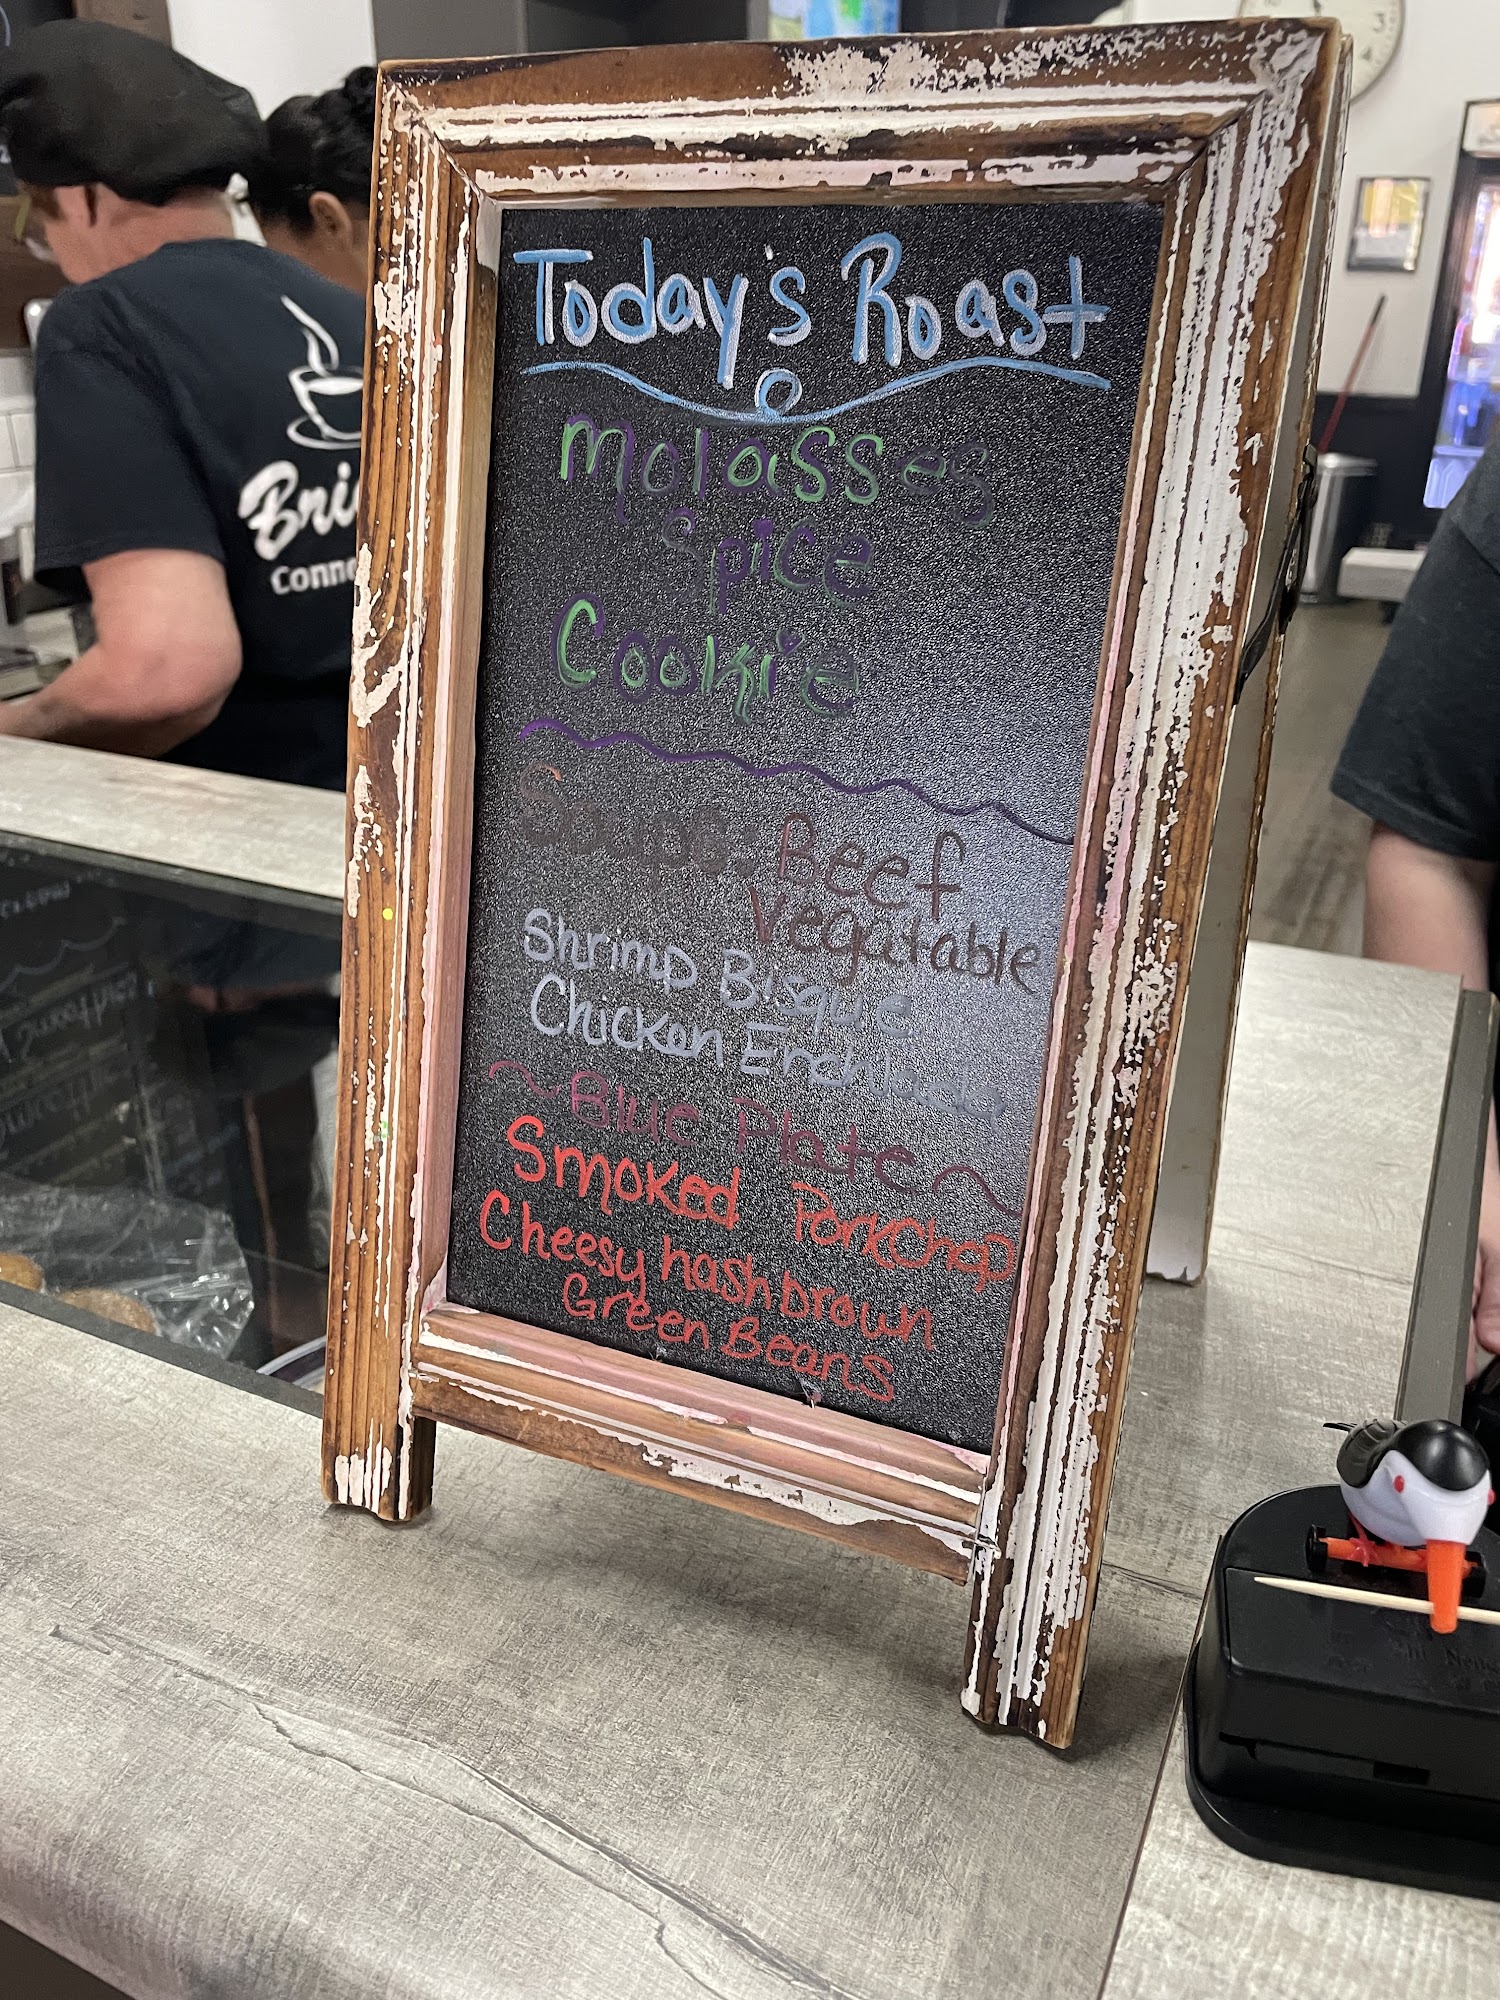 Today's Roast
Molasses
Spice
Cookie
Soups: Beef
Vegutable
Shrimp Bisque
Chicken Enchilada
~Blue Plate~
Smoked PorkChop
Cheesy hashbrown
Green Beans
Bri
Conn